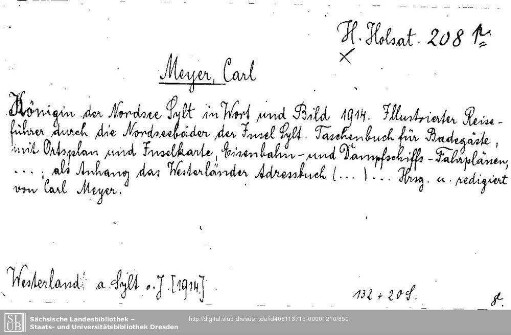 H. Holsat. 208
Meyer, Carl
Königin der Nordsee Sylt in Wort und Bild 1914. Illustrierter Reise-
führer durch die Nordseebäder der Insel Sylt. Taschenbuch für Badegäste,
mit Ortsplan und Inselkarte, Eisenbahn- und Dampfschiffs-Fahrplänen,
..., als Anhang das Westerländer Adressbuch (...) ... Hrsg. u. redigiert
von Carl Meyer.
Westerland a Sylt o. J. [1914]
132 + 20 S.
Sächsische Landesbibliothek –
Staats- und Universitätsbibliothek Dresden